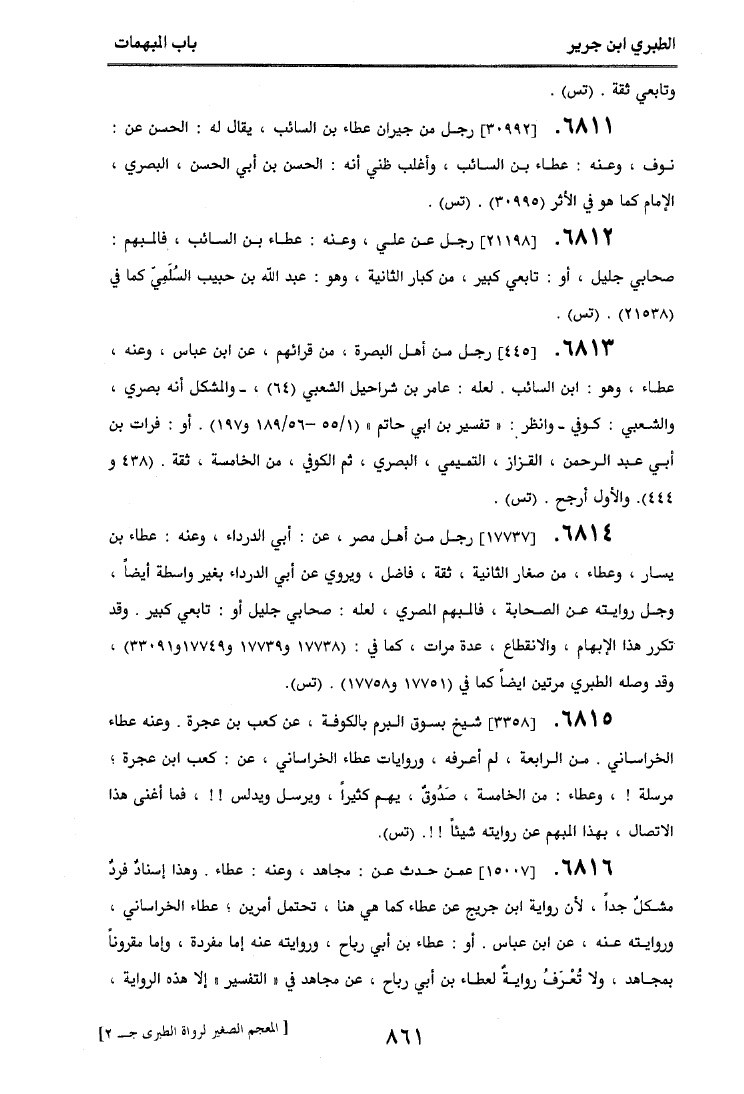 الطبري ابن جرير
باب المبهمات
وتابعي ثقة . (تس) .
٦٨١١. [٣٠٩٩٢] رجل من جيران عطاء بن السائب ، يقال له : الحسن عن :
نوف ، وعنه : عطاء بن السائب ، وأغلب ظني أنه : الحسن بن أبي الحسن ، البصري ،
الإمام كما هو في الأثر (٣٠٩٩٥) . (تس) .
٦٨١٢. [٢١١٩٨] رجل عن علي ، وعنه : عطاء بن السائب ، فالمبهم :
صحابي جليل ، أو : تابعي كبير ، من كبار الثانية ، وهو : عبد الله بن حبيب السُلَمِيّ كما في
(٢١٥٣٨) . (تس) .
٦٨١٣. [٤٤٥] رجل من أهل البصرة ، من قرائهم ، عن ابن عباس ، وعنه ،
عطاء ، وهو : ابن السائب . لعله : عامر بن شراحيل الشعبي (٦٤) ، ـ والمشكل أنه بصري ،
والشعبي : كوفي ـ وانظر : « تفسير بن ابي حاتم » (٥٥/١ –١٨٩/٥٦ و١٩٧) . أو : فرات بن
أبي عبد الرحمن ، القزاز ، التميمي ، البصري ، ثم الكوفي ، من الخامسة ، ثقة . (٤٣٨ و
٤٤٤). والأول أرجح . (تس) .
٦٨١٤. [١٧٧٣٧] رجل من أهل مصر ، عن : أبي الدرداء ، وعنه : عطاء بن
يسار ، وعطاء ، من صغار الثانية ، ثقة ، فاضل ، ويروي عن أبي الدرداء بغير واسطة أيضاً ،
وجل روايته عن الصحابة ، فالمبهم المصري ، لعله : صحابي جليل أو : تابعي كبير . وقد
تكرر هذا الإبهام ، والانقطاع ، عدة مرات ، كما في : (١٧٧٣٨ و١٧٧٣٩ و١٧٧٤٩و٣٣٠٩١) ،
وقد وصله الطبري مرتين ايضاً كما في (١٧٧٥١ و١٧٧٥٨) . (تس).
٦٨١٥. [٣٣٥٨] شيخ بسوق البرم بالكوفة ، عن كعب بن عجرة . وعنه عطاء
الخراساني . من الرابعة ، لم أعرفه ، وروايات عطاء الخراساني ، عن : كعب ابن عجرة ؛
مرسلة ! ، وعطاء : من الخامسة ، صَدُوقٌ ، يهم كثيراً ، ويرسل ويدلس !! ، فما أغنى هذا
الاتصال ، بهذا المبهم عن روايته شيئاً !!. (تس).
٦٨١٦. [١٥٠٠٧] عمن حدث عن : مجاهد ، وعنه : عطاء . وهذا إسنادٌ فردٌ
مشكلٌ جداً ، لأن رواية ابن جريج عن عطاء كما هي هنا ، تحتمل أمرين ؛ عطاء الخراساني ،
وروايته عنه ، عن ابن عباس . أو : عطاء بن أبي رباح ، وروايته عنه إما مفردة ، وإما مقروناً
بمجاهد ، ولا تُعْرَفُ روايةٌ لعطاء بن أبي رباح ، عن مجاهد في « التفسير » إلا هذه الرواية ،
٨٦١
[ المعجم الصغير لرواة الطبرى جـ ٢]